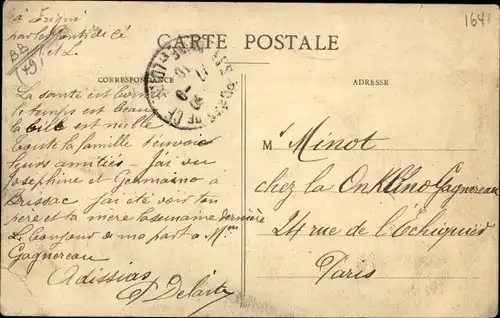 à Erigné
par les Ponts de Cé
et L.
1641
BB
49
CARTE POSTALE
CORRESPONDANCE
ADRESSE
La santé est bonne
le temps est beau
la bile est nulle
Toute la famille t'envoie
leurs amitiés - J'ai vu
Joséphine et Germaine à
Brissac J'ai été voir ton
père et ta mère la semaine dernière
Le bonjour de ma part à Mme
Gagnereau
E Delaite
M Minot
chez la Gagnereau
24 rue de l'Echiquier
Paris